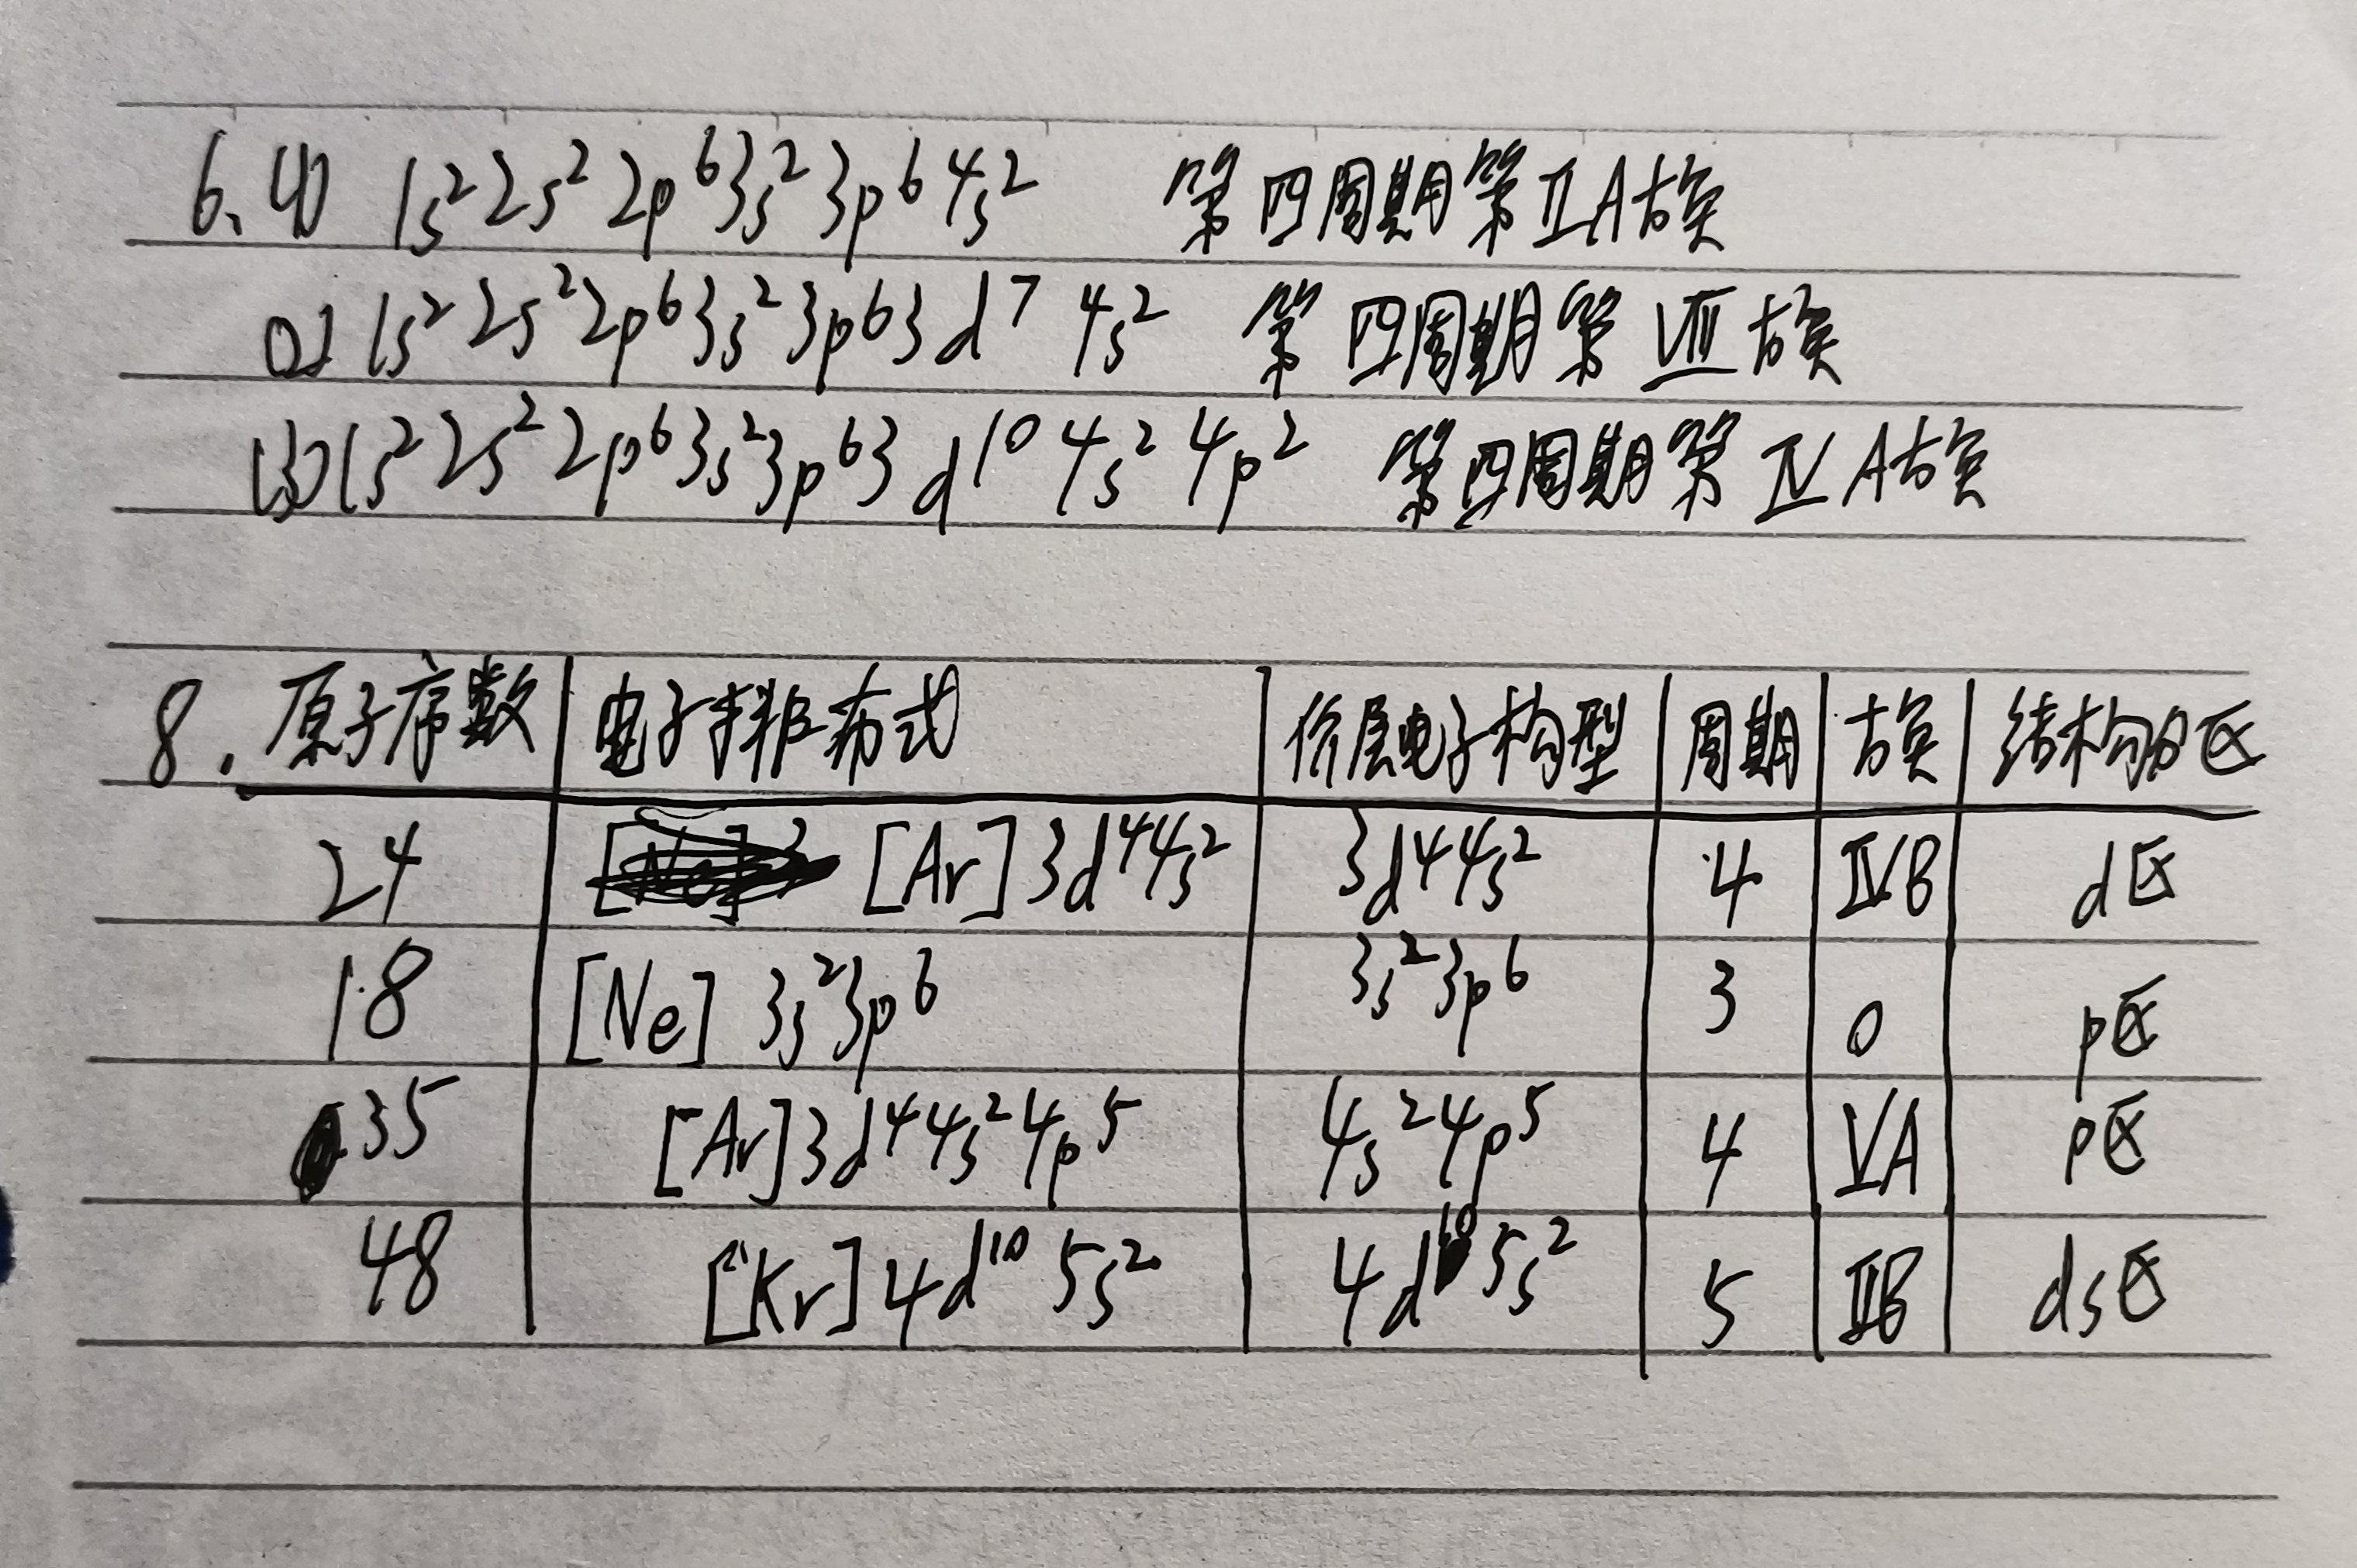 6. (1) 1s² 2s² 2p⁶ 3s² 3p⁶ 4s² 第四周期第ⅡA族
(2) 1s² 2s² 2p⁶ 3s² 3p⁶ 3d⁷ 4s² 第四周期第Ⅷ族
(3) 1s² 2s² 2p⁶ 3s² 3p⁶ 3d¹⁰ 4s² 4p² 第四周期第ⅣA族
8. 原子序数 电子排布式 价层电子构型 周期 族 结构分区
24 [Ar] 3d⁴4s² 3d⁴4s² 4 ⅣB d区
18 [Ne] 3s²3p⁶ 3s²3p⁶ 3 0 p区
35 [Ar] 3d⁴4s²4p⁵ 4s²4p⁵ 4 ⅤA p区
48 [Kr] 4d¹⁰5s² 4d¹⁰5s² 5 ⅡB ds区